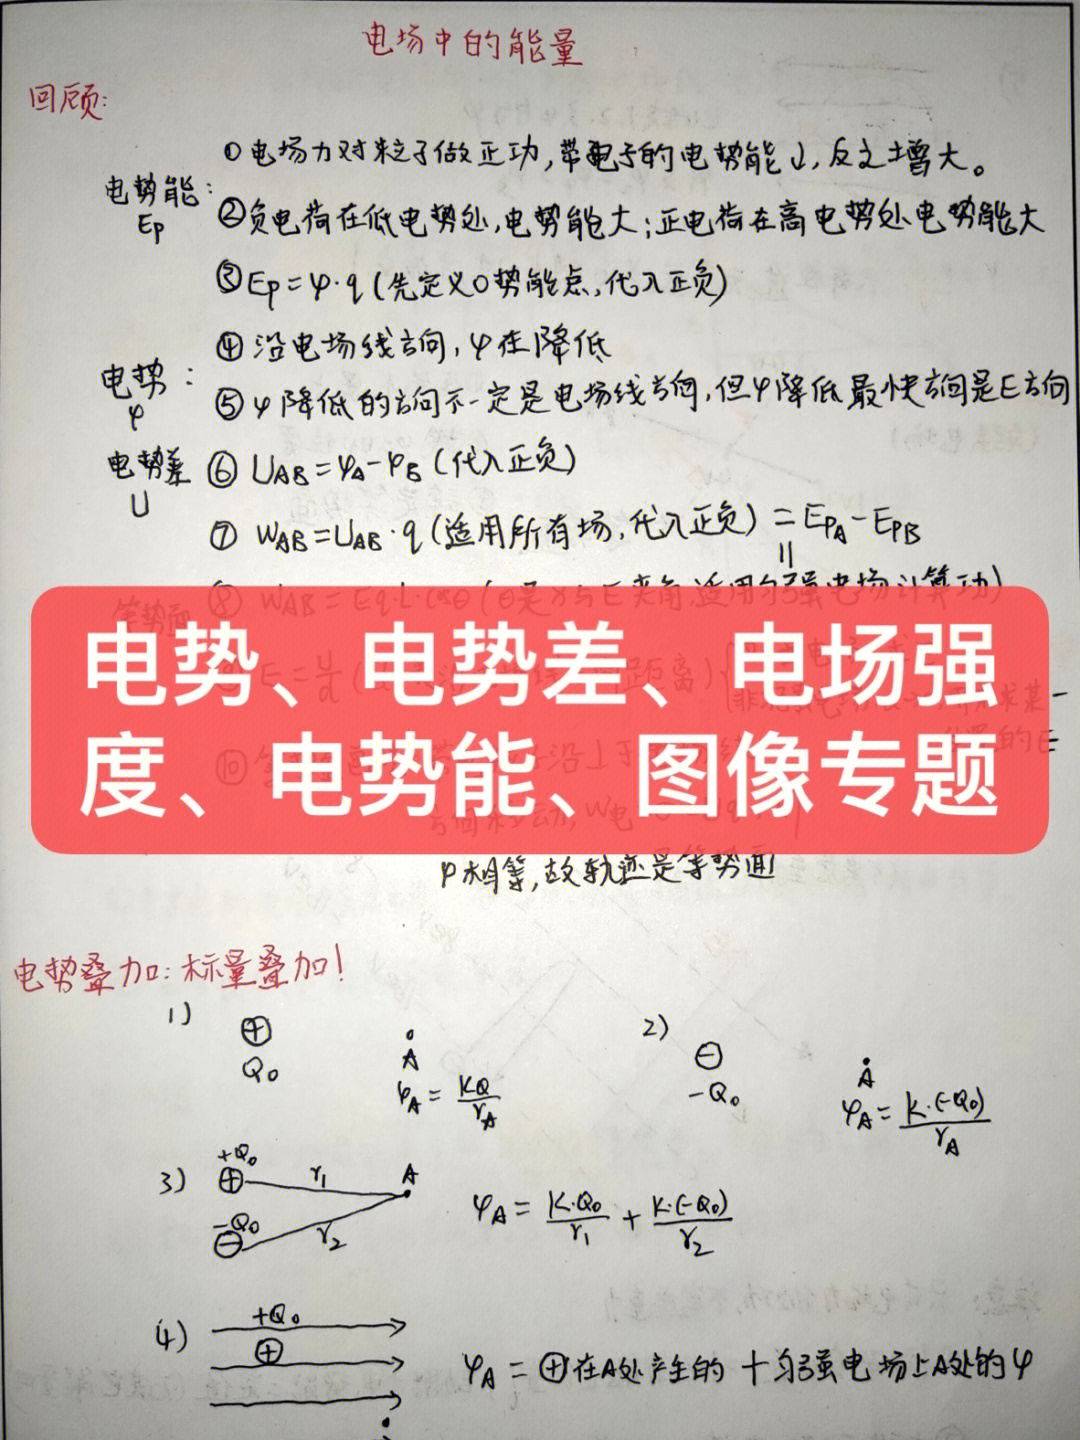 电场中的能量
回顾:
①电场力对粒子做正功,带电子的电势能↓,反之增大。
电势能:
Ep
②负电荷在低电势处,电势能大;正电荷在高电势处电势能大
③Ep=φ·q(先定义0势能点,代入正负)
④沿电场线方向,φ在降低
电势:
φ
⑤φ降低的方向不一定是电场线方向,但φ降低最快方向是E方向
电势差
U
⑥ UAB=φA-φB(代入正负)
⑦ WAB=UAB·q(适用所有场,代入正负)=EPA-EPB
=
⑧ WAB=Eq·L·cosθ(θ是
与E夹角,适用匀强电场计算功)
等势面
电势、电势差、电场强
度、电势能、图像专题
φ相等,故轨迹是等势面
电势叠加:标量叠加!
1)
⊕
Q₀
A
φA=KQ/rA
2)
⊖
-Q₀
A
φA=K·(-Q₀)/rA
3)
+Q₀
⊕
r₁
A
-Q₀
⊖
r₂
φA=K·Q₀/r₁+K·(-Q₀)/r₂
4)
+Q₀
⊕
φA=⊕在A处产生的+匀强电场上A处的φ